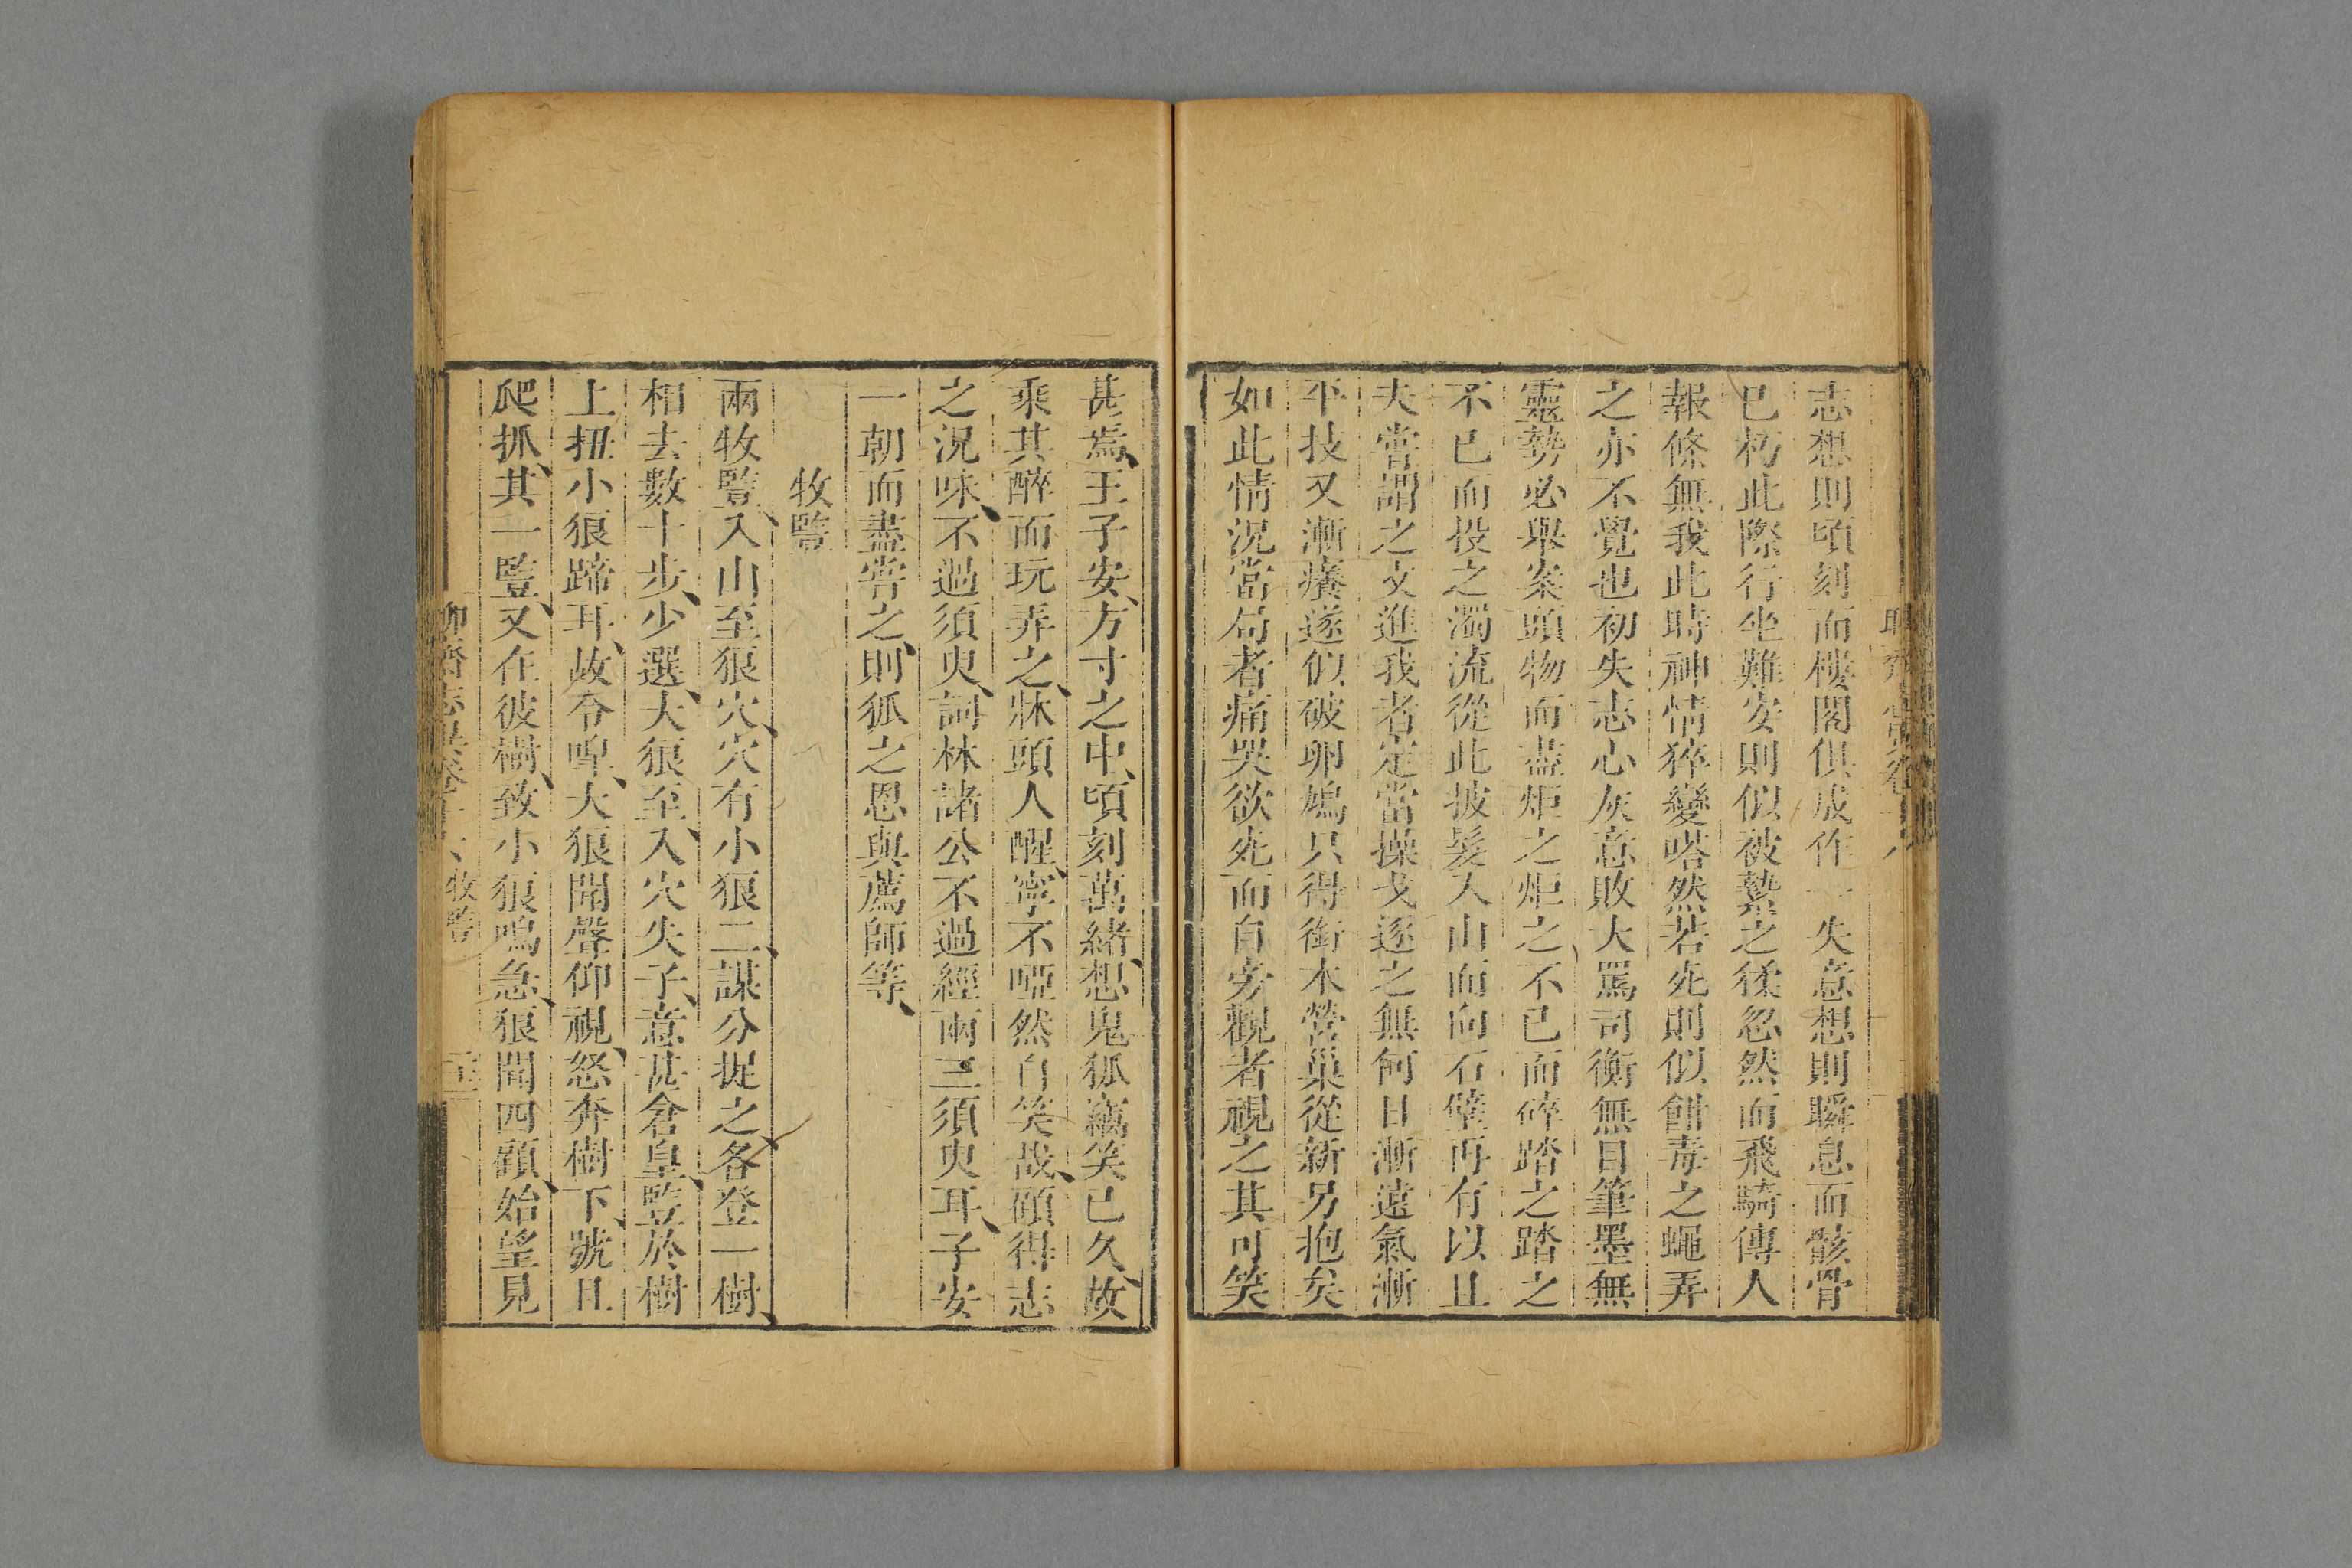 志想則頃刻而樓閣俱成作一失意想則瞬息而骸骨
已朽此際行坐難安則似被縶之猱忽然而飛騎傳人
報條無我此時神情猝變嗒然若死則似餌毒之蠅弄
之亦不覺也初失志心灰意敗大罵司衡無目筆墨無
靈勢必舉案頭物而盡炬之炬之不已而碎踏之踏之
不已而投之濁流從此披髮入山面向石壁再有以且
夫嘗謂之文進我者定當操戈逐之無何日漸遠氣漸
平技又漸癢遂似破卵鳩只得銜木營巢從新另抱矣
如此情況當局者痛哭欲死而自旁觀者視之其可笑
甚焉王子安方寸之中頃刻萬緒想鬼狐竊笑已久故
乘其醉而玩弄之牀頭人醒寧不啞然自笑哉顧得志
之況味不過須臾詞林諸公不過經兩三須臾耳子安
一朝而盡嘗之則狐之恩與薦師等
牧豎
兩牧豎入山至狼穴穴有小狼二謀分捉之各登一樹
相去數十步少選大狼至入穴失子意甚倉皇豎於樹
上扭小狼蹄耳故令嘷大狼聞聲仰視怒奔樹下號且
爬抓其一豎又在彼樹致小狼鳴急狼聞四顧始望見
牧豎